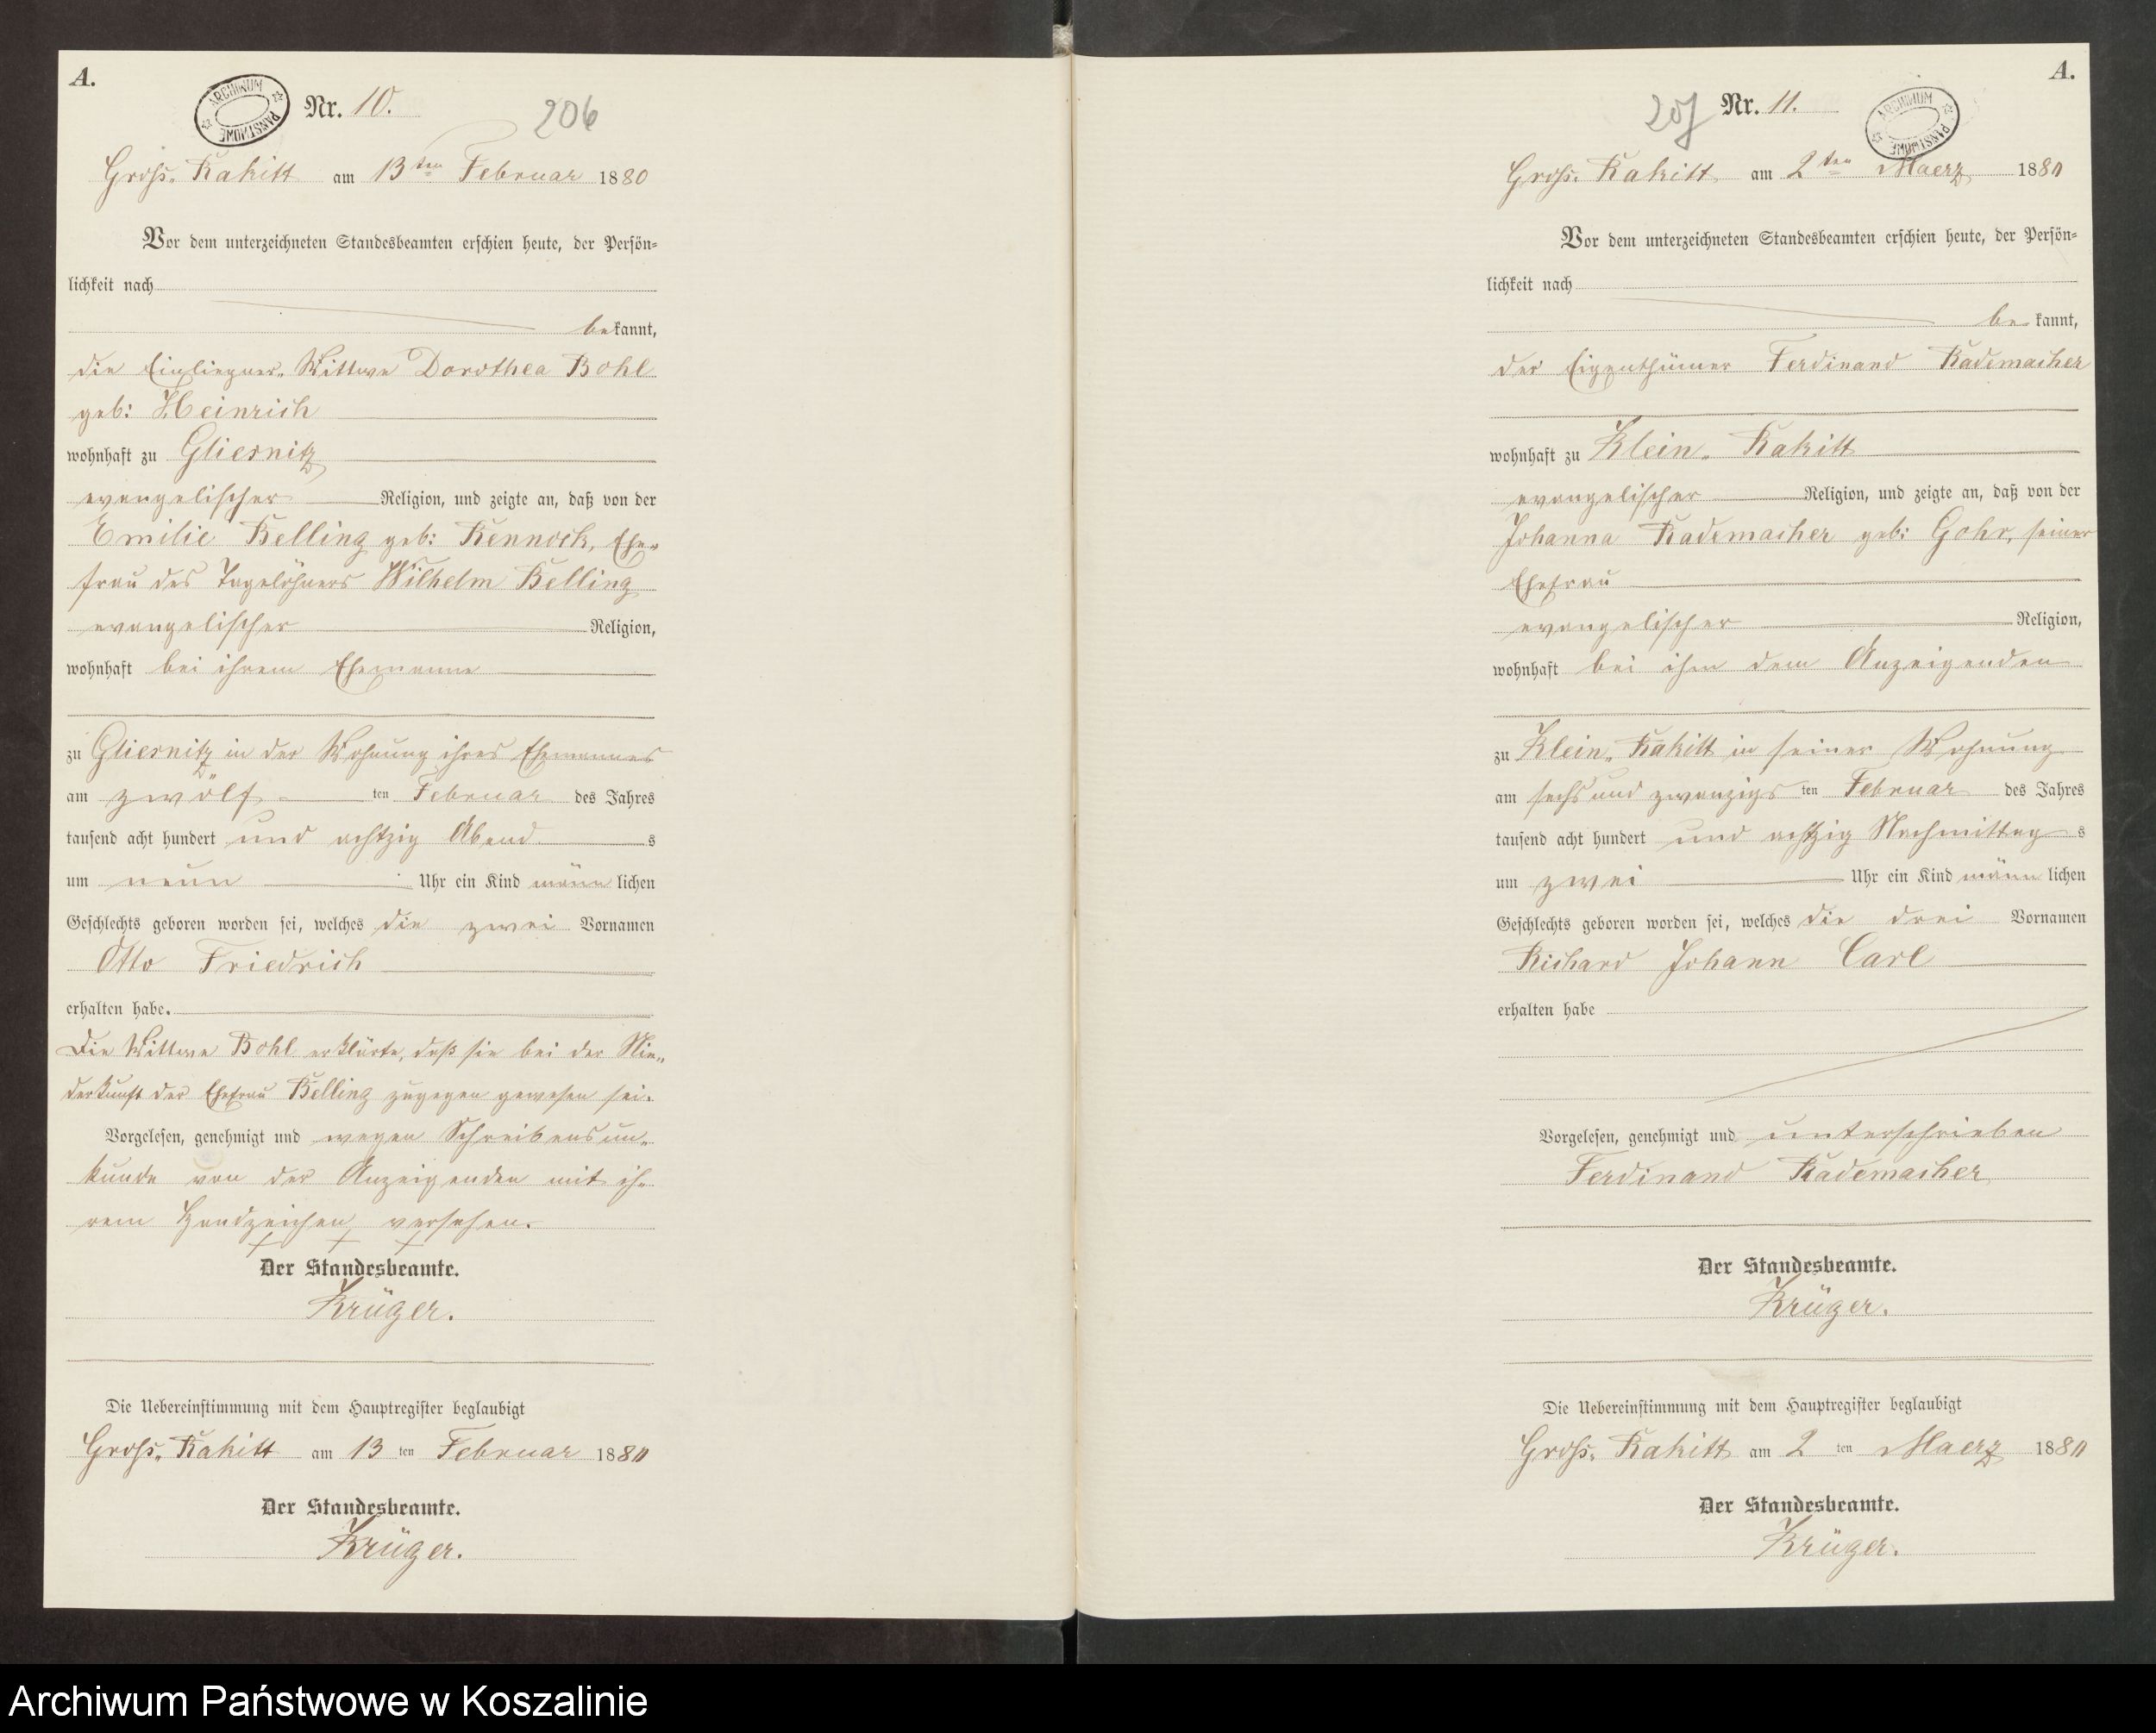 A.
ARCHIWUM PAŃSTWOWE
Nr. 10.
206
Groß-Rakitt am 13ten Februar 1880
Vor dem unterzeichneten Standesbeamten erschien heute, der Persön-
lichkeit nach
bekannt,
die Einlieger-Wittwe Dorothea Bohl
geb: Heinrich
wohnhaft zu Gliesnitz
evangelischer Religion, und zeigte an, daß von der
Emilie Belling geb: Rennock, Ehe-
frau des Tagelöhners Wilhelm Belling
evangelischer Religion,
wohnhaft bei ihrem Ehemanne
zu Gliesnitz in der Wohnung ihres Ehemannes
am zwölf ten Februar des Jahres
tausend acht hundert und achtzig Abend s
um neun Uhr ein Kind männlichen
Geschlechts geboren worden sei, welches die zwei Vornamen
Otto Friedrich
erhalten habe.
Die Wittwe Bohl erklärte, daß sie bei der Nie-
derkunft der Ehefrau Belling zugegen gewesen sei.
Vorgelesen, genehmigt und wegen Schreibensun-
kunde von der Anzeigenden mit ih-
rem Handzeichen versehen.
+ + +
Der Standesbeamte.
Krüger.
Die Uebereinstimmung mit dem Hauptregister beglaubigt
Groß-Rakitt am 13 ten Februar 1880
Der Standesbeamte.
Krüger.
A.
207
Nr. 11.
ARCHIWUM PAŃSTWOWE
Groß-Rakitt am 2ten Maerz 1880
Vor dem unterzeichneten Standesbeamten erschien heute, der Persön-
lichkeit nach
bekannt,
der Eigenthümer Ferdinand Rademacher
wohnhaft zu Klein-Rakitt
evangelischer Religion, und zeigte an, daß von der
Johanna Rademacher geb: Gohr, seiner
Ehefrau
evangelischer Religion,
wohnhaft bei ihm dem Anzeigenden
zu Klein-Rakitt in seiner Wohnung
am sechs und zwanzigs ten Februar des Jahres
tausend acht hundert und achtzig Nachmittag s
um zwei Uhr ein Kind männlichen
Geschlechts geboren worden sei, welches die drei Vornamen
Richard Johann Carl
erhalten habe
Vorgelesen, genehmigt und unterschrieben
Ferdinand Rademacher
Der Standesbeamte.
Krüger.
Die Uebereinstimmung mit dem Hauptregister beglaubigt
Groß-Rakitt am 2 ten Maerz 1880
Der Standesbeamte.
Krüger.
Archiwum Państwowe w Koszalinie